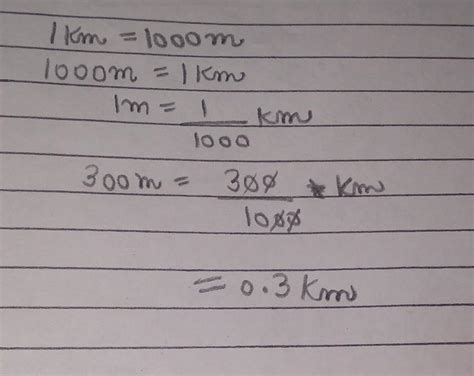 1Km = 1000m
1000m = 1Km
1m = 1/1000 Km
300m = 300/1000 Km
= 0.3 Km